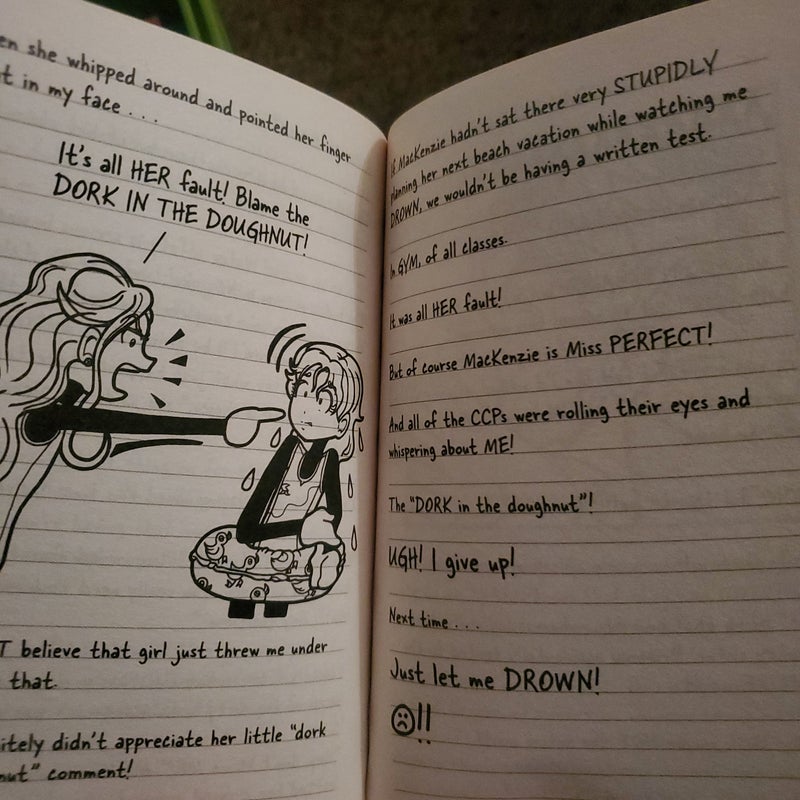 en she whipped around and pointed her finger
t in my face . . .
It's all HER fault! Blame the
DORK IN THE DOUGHNUT!
T believe that girl just threw me under
that.
itely didn't appreciate her little "dork
nut" comment!
If MacKenzie hadn't sat there very STUPIDLY
planning her next beach vacation while watching me
DROWN, we wouldn't be having a written test.
In GYM, of all classes.
It was all HER fault!
But of course MacKenzie is Miss PERFECT!
And all of the CCPs were rolling their eyes and
whispering about ME!
The "DORK in the doughnut"!
UGH! I give up!
Next time . . .
Just let me DROWN!
☹!!